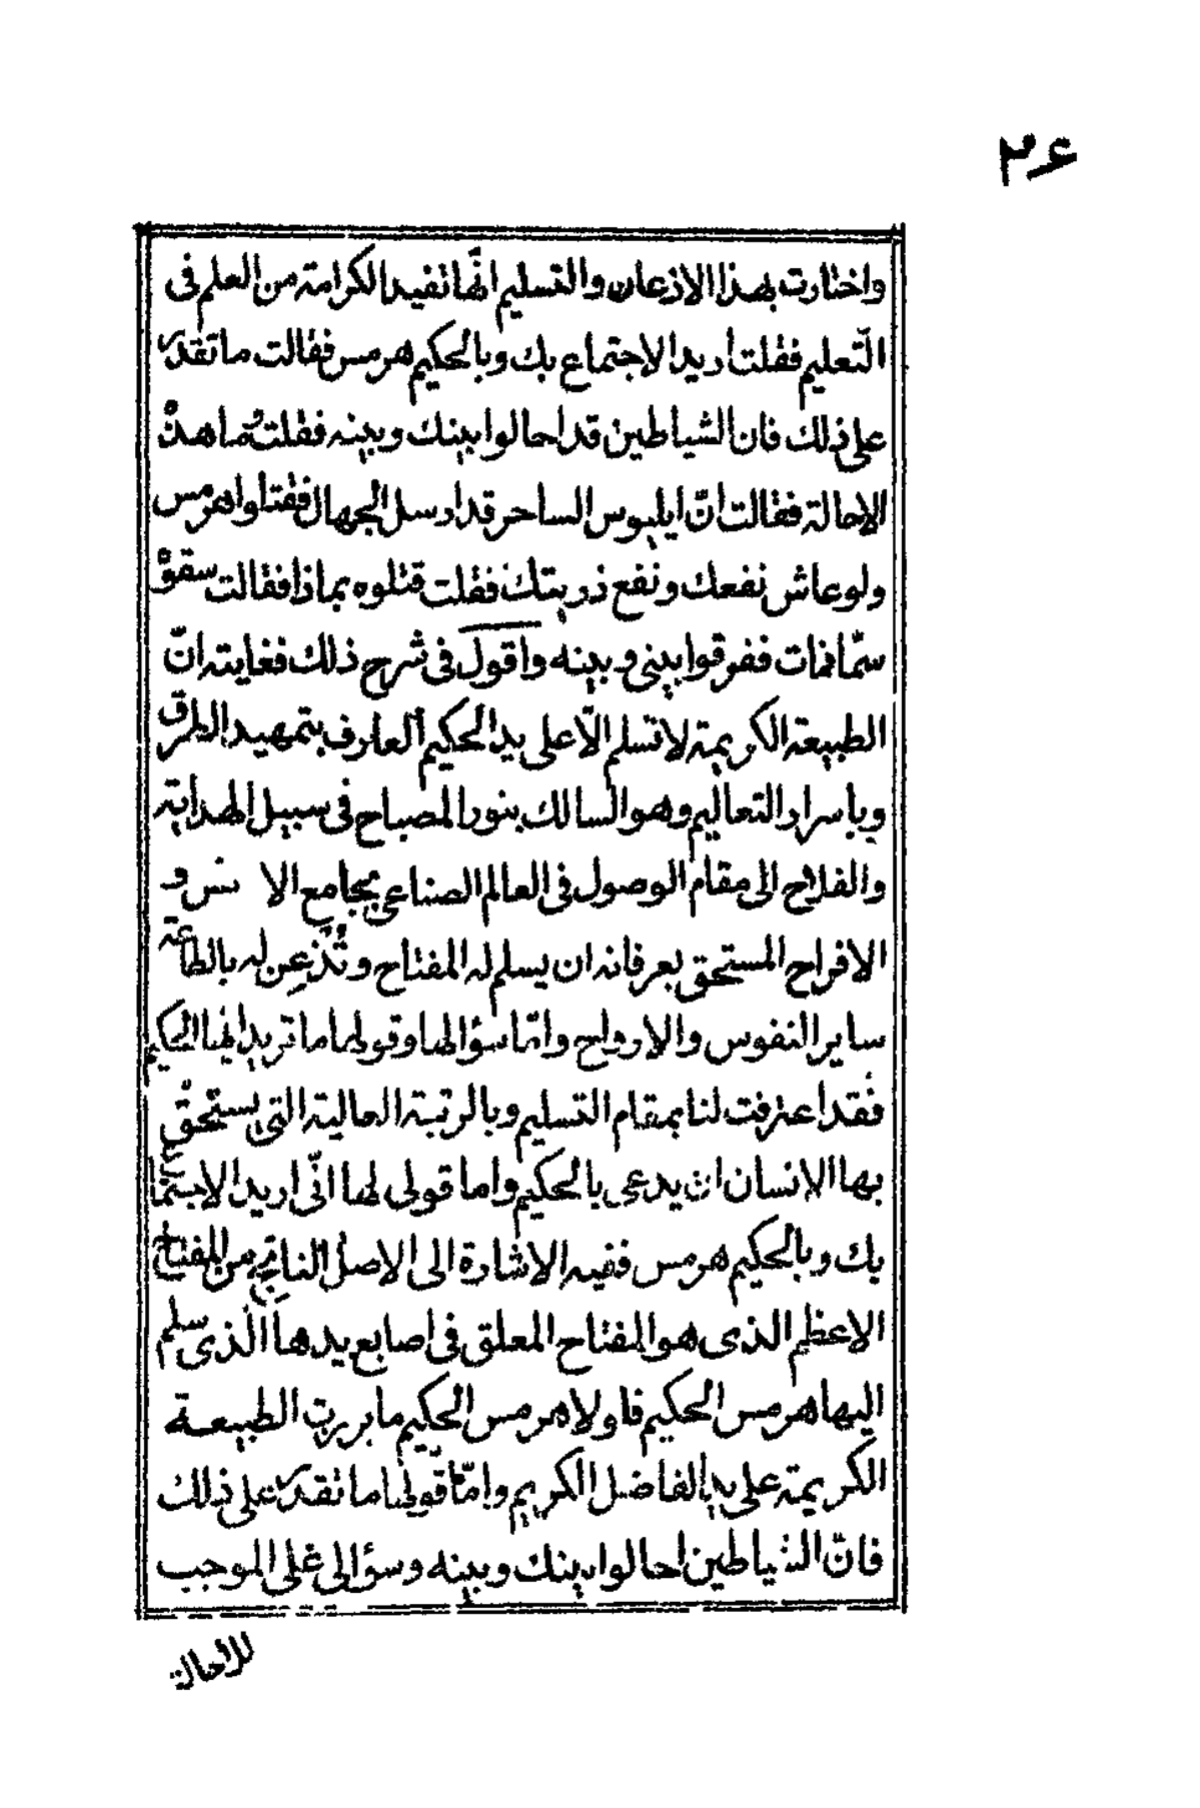 ٢۶
واختارت بهذا الاذعان والتسليم انّها تفيد الكرامة من العلم فى
التّعليم فقلت أريد الاجتماع بك وبالحكيم هرمس فقالت ما تقدر
على ذلك فان الشياطين قد احالوا بينك وبينه فقلت وما هذه
الاحالة فقالت انّ ايليوس الساحر قد ارسل الجهال فقتلوا هرمس
ولو عاش نفعك ونفع ذريتك فقلت قتلوه بماذا فقالت سقوه
سمّا فمات ففرقوا بينى وبينه واقول فى شرح ذلك فغايته انّ
الطبيعة الكريمة لا تسلم الّا على يد الحكيم العارف بتمهيد الطرق
وباسرار التعاليم وهو السالك بنور المصباح فى سبيل الهداية
والفلاح الى مقام الوصول فى العالم الصناعى بمجامع الانس و
الافراح المستحق بعرفانه ان يسلم له المفتاح وتُذعِن له بالطاعة
ساير النفوس والارواح وامّا سؤالها وقولها ما تريد ايها الحكيم
فقد اعترفت لنا بمقام التسليم وبالرتبة العالية التى يستحقّ
بها الانسان ان يدعى بالحكيم واما قولى لها انّى اريد الاجتماع
بك وبالحكيم هرمس ففيه الاشارة الى الاصل الناتج من المفتاح
الاعظم الذى هو المفتاح المعلق فى اصابع يدها الّذى سلم
اليها هرمس الحكيم فلولا هرمس الحكيم ما بررت الطبيعة
الكريمة على يد الفاضل الكريم وامّا قولها ما تقدر على ذلك
فانّ الشياطين احالوا بينك وبينه وسؤالى على الموجب
للاحالة